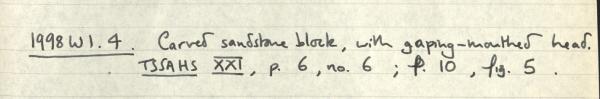 1998 W1. 4. Carved sandstone block, with gaping-mouthed head.
TSSAHS XXI, p. 6, no. 6 ; p. 10, fig. 5.